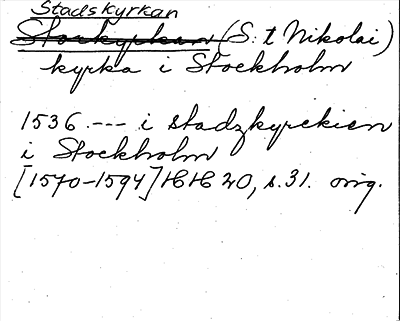 Stadskyrkan
Storkyrkan (S:t Nikolai)
kyrka i Stockholm
1536 --- i stadzkyrckien
i Stockholm
[1570-1594] HH 20, s. 31. orig.